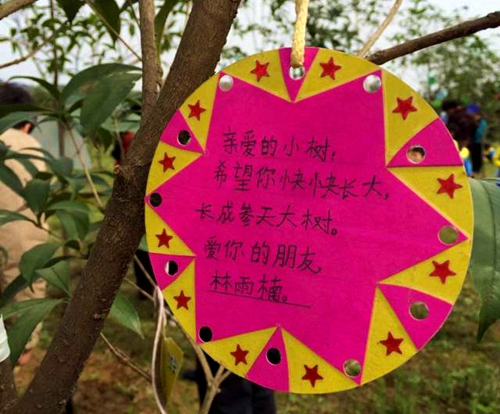 亲爱的小树，
希望你快快长大，
长成参天大树。
爱你的朋友，
林雨楠。